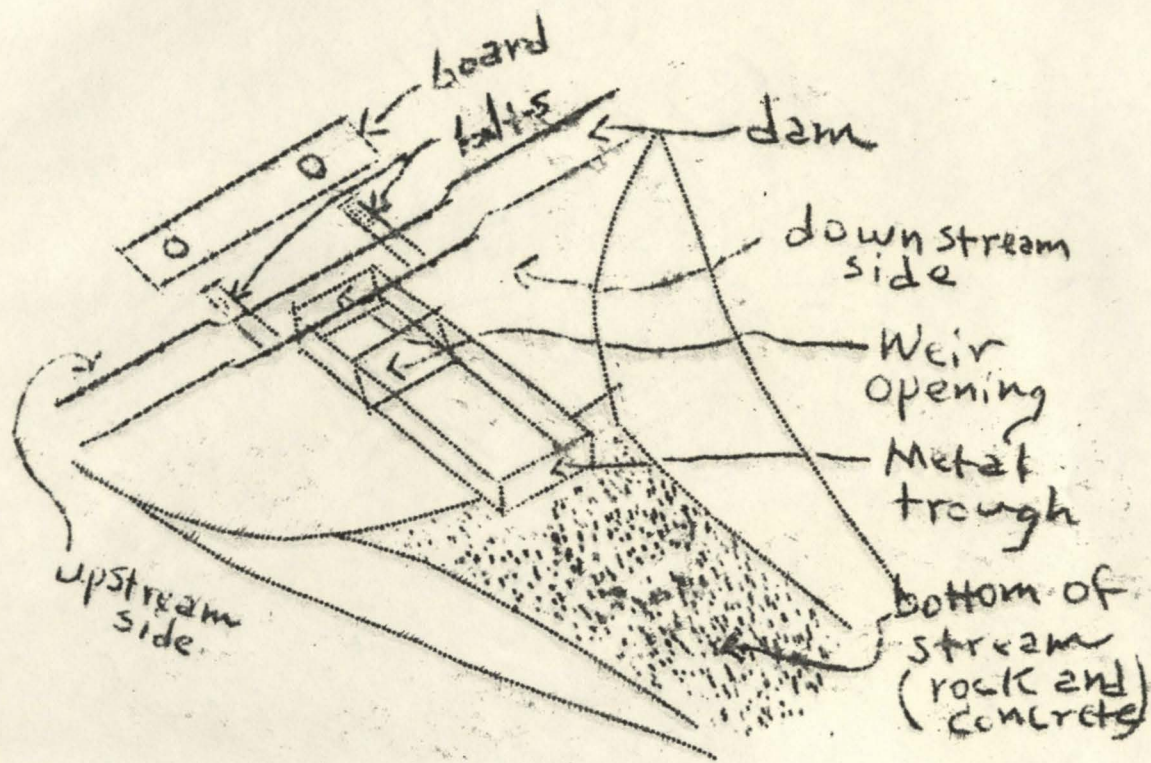 board
bolts
dam
down stream
side
Weir
opening
Metal
trough
upstream
side
bottom of
stream
(rock and
concrete)